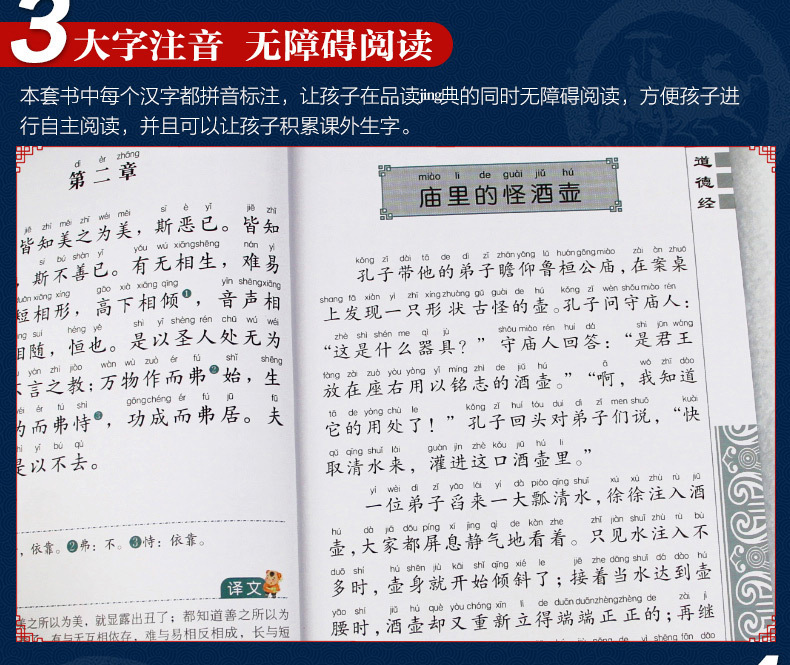 3 大字注音 无障碍阅读
本套书中每个汉字都拼音标注，让孩子在品读jing典的同时无障碍阅读，方便孩子进
行自主阅读，并且可以让孩子积累课外生字。
dì èr zhāng
第二章
皆知美之为美，斯恶已。皆知
，斯不善已。有无相生，难易
短相形，高下相倾❶，音声相
相随，恒也。是以圣人处无为
不言之教；万物作而弗❷始，生
为而弗恃❸，功成而弗居。夫
是以不去。
，依靠。❷弗：不。❸恃：依靠。
译文
善之所以为美，就显露出丑了；都知道善之所以为
有与无互相依存，难与易相反相成，长与短
miào li de guài jiǔ hú
庙里的怪酒壶
kǒng zǐ dài tā de dì zǐ zhān yǎng lǔ huán gōng miào zài àn zhuō
孔子带他的弟子瞻仰鲁桓公庙，在案桌
shang fā xiàn yì zhī xíng zhuàng gǔ guài de hú kǒng zǐ wèn shǒu miào rén
上发现一只形状古怪的壶。孔子问守庙人：
zhè shì shén me qì jù shǒu miào rén huí dá shì jūn wáng
“这是什么器具？”守庙人回答：“是君王
fàng zài zuò yòu yòng yǐ míng zhì de jiǔ hú ā wǒ zhī dào
放在座右用以铭志的酒壶。”“啊，我知道
tā de yòng chù le kǒng zǐ huí tóu duì dì zǐ men shuō kuài
它的用处了！”孔子回头对弟子们说，“快
qǔ qīng shuǐ lái guàn jìn zhè kǒu jiǔ hú li
取清水来，灌进这口酒壶里。”
yí wèi dì zǐ yǎo lái yí dà piáo qīng shuǐ xú xú zhù rù jiǔ
一位弟子舀来一大瓢清水，徐徐注入酒
hú dà jiā dōu bǐng xī jìng qì de kàn zhe zhǐ jiàn shuǐ zhù rù bù
壶，大家都屏息静气地看着。只见水注入不
duō shí hú shēn jiù kāi shǐ qīng xié le jiē zhe dāng shuǐ dá dào hú
多时，壶身就开始倾斜了；接着当水达到壶
yāo shí jiǔ hú què yòu chóng xīn lì de duān duān zhèng zhèng de zài jì
腰时，酒壶却又重新立得端端正正的；再继
道德经